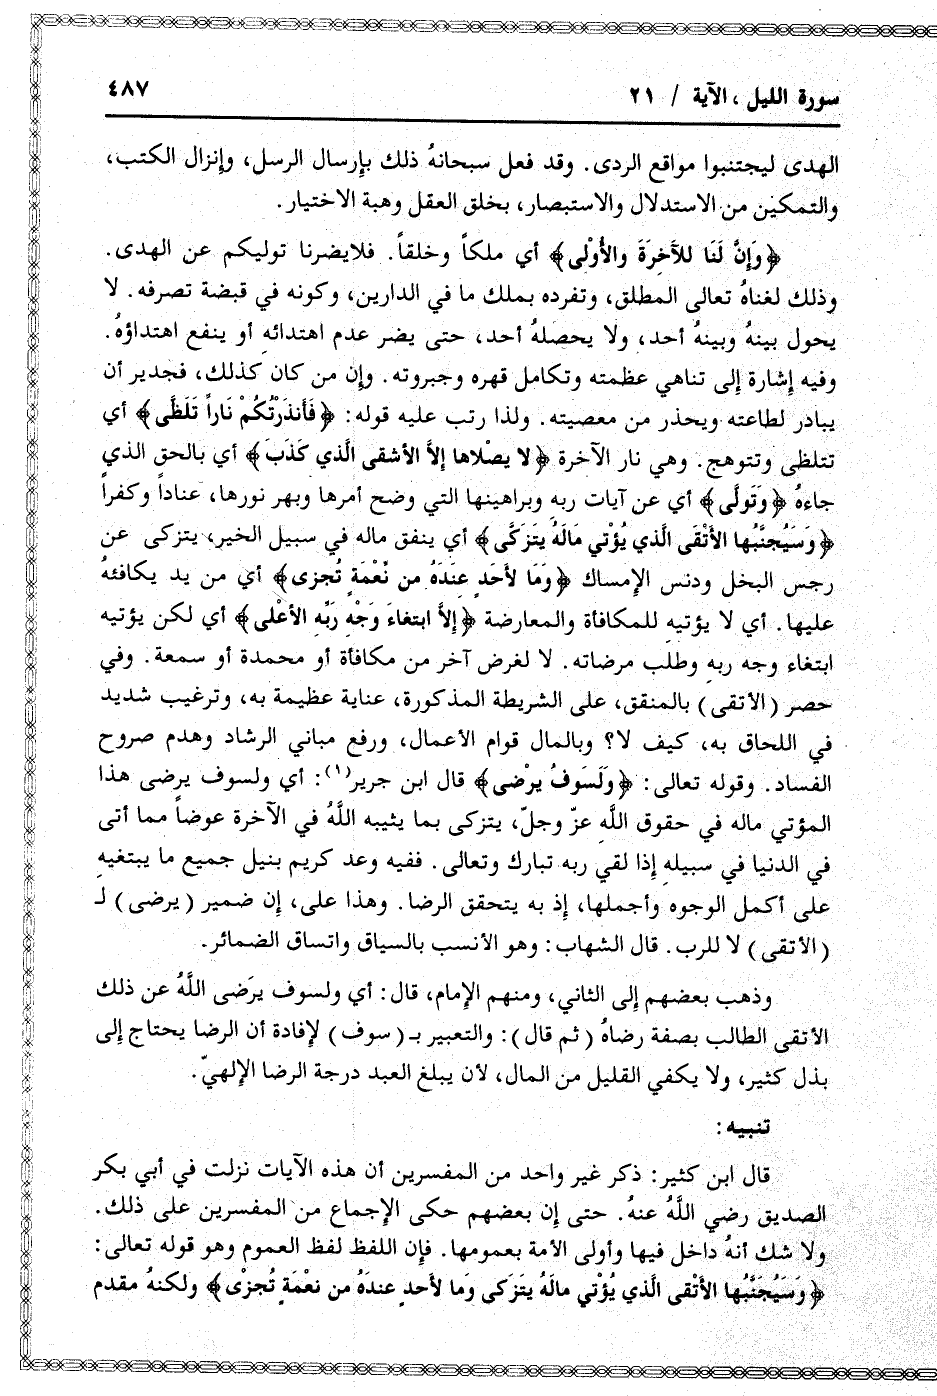 سورة الليل، الآية / ٢١
٤٨٧
الهدى ليجتنبوا مواقع الردى. وقد فعل سبحانهُ ذلك بإرسال الرسل، وإنزال الكتب،
والتمكين من الاستدلال والاستبصار، بخلق العقل وهبة الاختيار.
﴿وَإِنَّ لَنَا للآَخِرَةَ والأُوْلى﴾ أي ملكاً وخلقاً. فلايضرنا توليكم عن الهدى.
وذلك لغناهُ تعالى المطلق، وتفرده بملك ما في الدارين، وكونه في قبضة تصرفه. لا
يحول بينهُ وبينهُ أحد، ولا يحصلهُ أحد، حتى يضر عدم اهتدائهِ أو ينفع اهتداؤهُ.
وفيه إشارة إلى تناهي عظمته وتكامل قهره وجبروته. وإن من كان كذلك، فجدير أن
يبادر لطاعته ويحذر من معصيته. ولذا رتب عليه قوله: ﴿فَأَنذَرْتُكُمْ نَاراً تَلَظَّى﴾ أي
تتلظى وتتوهج. وهي نار الآخرة ﴿لا يصْلاها إلاَّ الأشقى الَّذي كَذَبَ﴾ أي بالحق الذي
جاءهُ ﴿وَتَولَّى﴾ أي عن آيات ربه وبراهينها التي وضح أمرها وبهر نورها، عناداً وكفراً
﴿وَسَيُجنَّبُها الأَتْقَى الَّذي يُؤْتي مَالَهُ يتَزَكَّى﴾ أي ينفق ماله في سبيل الخير، يتزكى عن
رجس البخل ودنس الإمساك ﴿وَمَا لأحَدٍ عِندَهُ من نِّعْمَةٍ تُجزى﴾ أي من يد يكافئهُ
عليها. أي لا يؤتيهِ للمكافأة والمعارضة ﴿إلاَّ ابتغاءَ وَجْهِ ربِّه الأعْلى﴾ أي لكن يؤتيه
ابتغاء وجه ربهِ وطلب مرضاته. لا لغرض آخر من مكافأة أو محمدة أو سمعة. وفي
حصر (الأتقى) بالمنفق، على الشريطة المذكورة، عناية عظيمة به، وترغيب شديد
في اللحاق به، كيف لا؟ وبالمال قوام الأعمال، ورفع مباني الرشاد وهدم صروح
الفساد. وقوله تعالى: ﴿وَلَسَوفُ يرْضى﴾ قال ابن جرير(١): أي ولسوف يرضى هذا
المؤتي ماله في حقوق اللَّهِ عزّ وجلّ، يتزكى بما يثيبه اللَّهُ في الآخرة عوضاً مما أتى
في الدنيا في سبيلهِ إذا لقي ربه تبارك وتعالى. ففيه وعد كريم بنيل جميع ما يبتغيهِ
على أكمل الوجوه وأجملها، إذ به يتحقق الرضا. وهذا على، إن ضمير (يرضى) لـ
(الأتقى) لا للرب. قال الشهاب: وهو الأنسب بالسياق واتساق الضمائر.
وذهب بعضهم إلى الثاني، ومنهم الإمام، قال: أي ولسوف يرَضى اللَّهُ عن ذلك
الأتقى الطالب بصفة رضاهُ (ثم قال): والتعبير بـ (سوف) لإفادة أن الرضا يحتاج إلى
بذل كثير، ولا يكفي القليل من المال، لأن يبلغ العبد درجة الرضا الإلهيّ.
تنبيه:
قال ابن كثير: ذكر غير واحد من المفسرين أن هذه الآيات نزلت في أبي بكر
الصديق رضي اللَّهُ عنهُ. حتى إن بعضهم حكى الإجماع من المفسرين على ذلك.
ولا شك أنهُ داخل فيها وأولى الأمة بعمومها. فإن اللفظ لفظ العموم وهو قوله تعالى:
﴿وَسَيُجَنَّبُها الأَتْقى الَّذي يُؤْتي مالَهُ يتَزَكى وَما لأحدٍ عندَهُ من نعْمَةٍ تُجزْى﴾ ولكنهُ مقدم